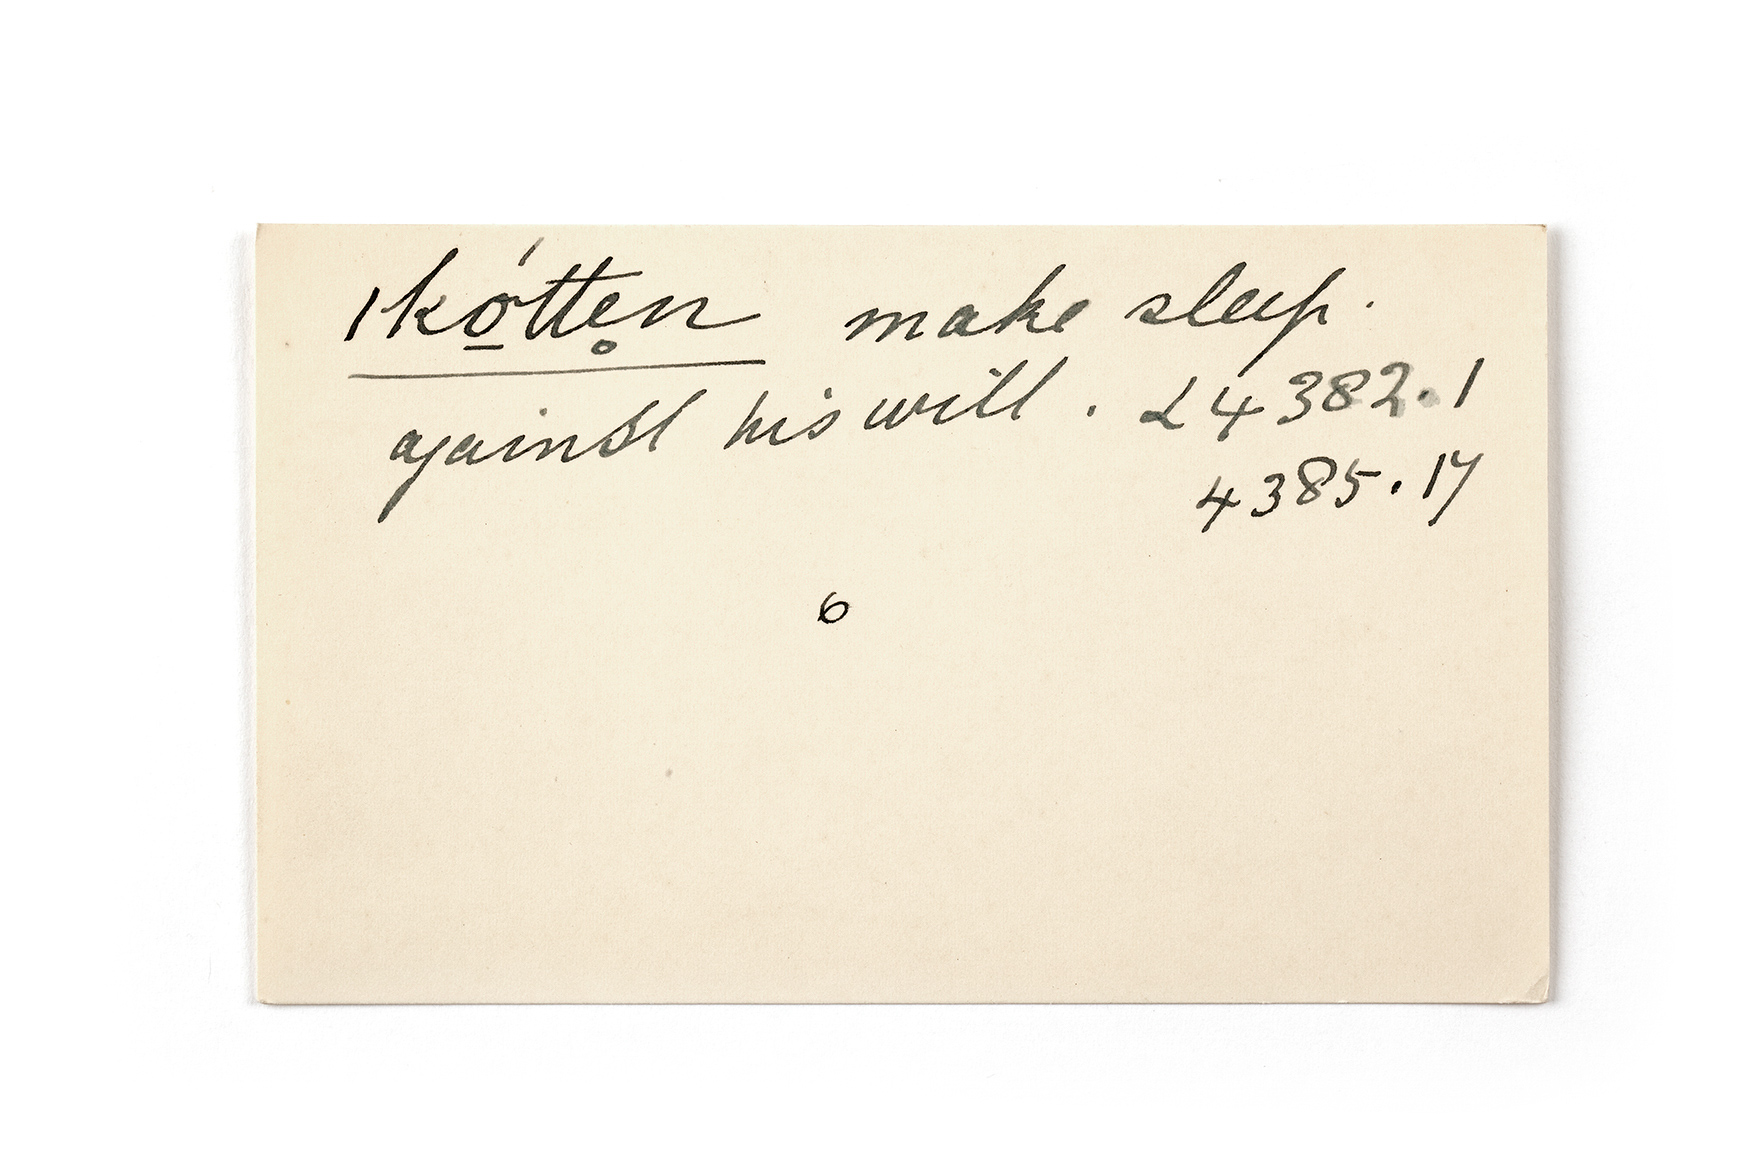 ǀkó̱tte̥n make sleep.
against his will. L4382.1
4385.17
6